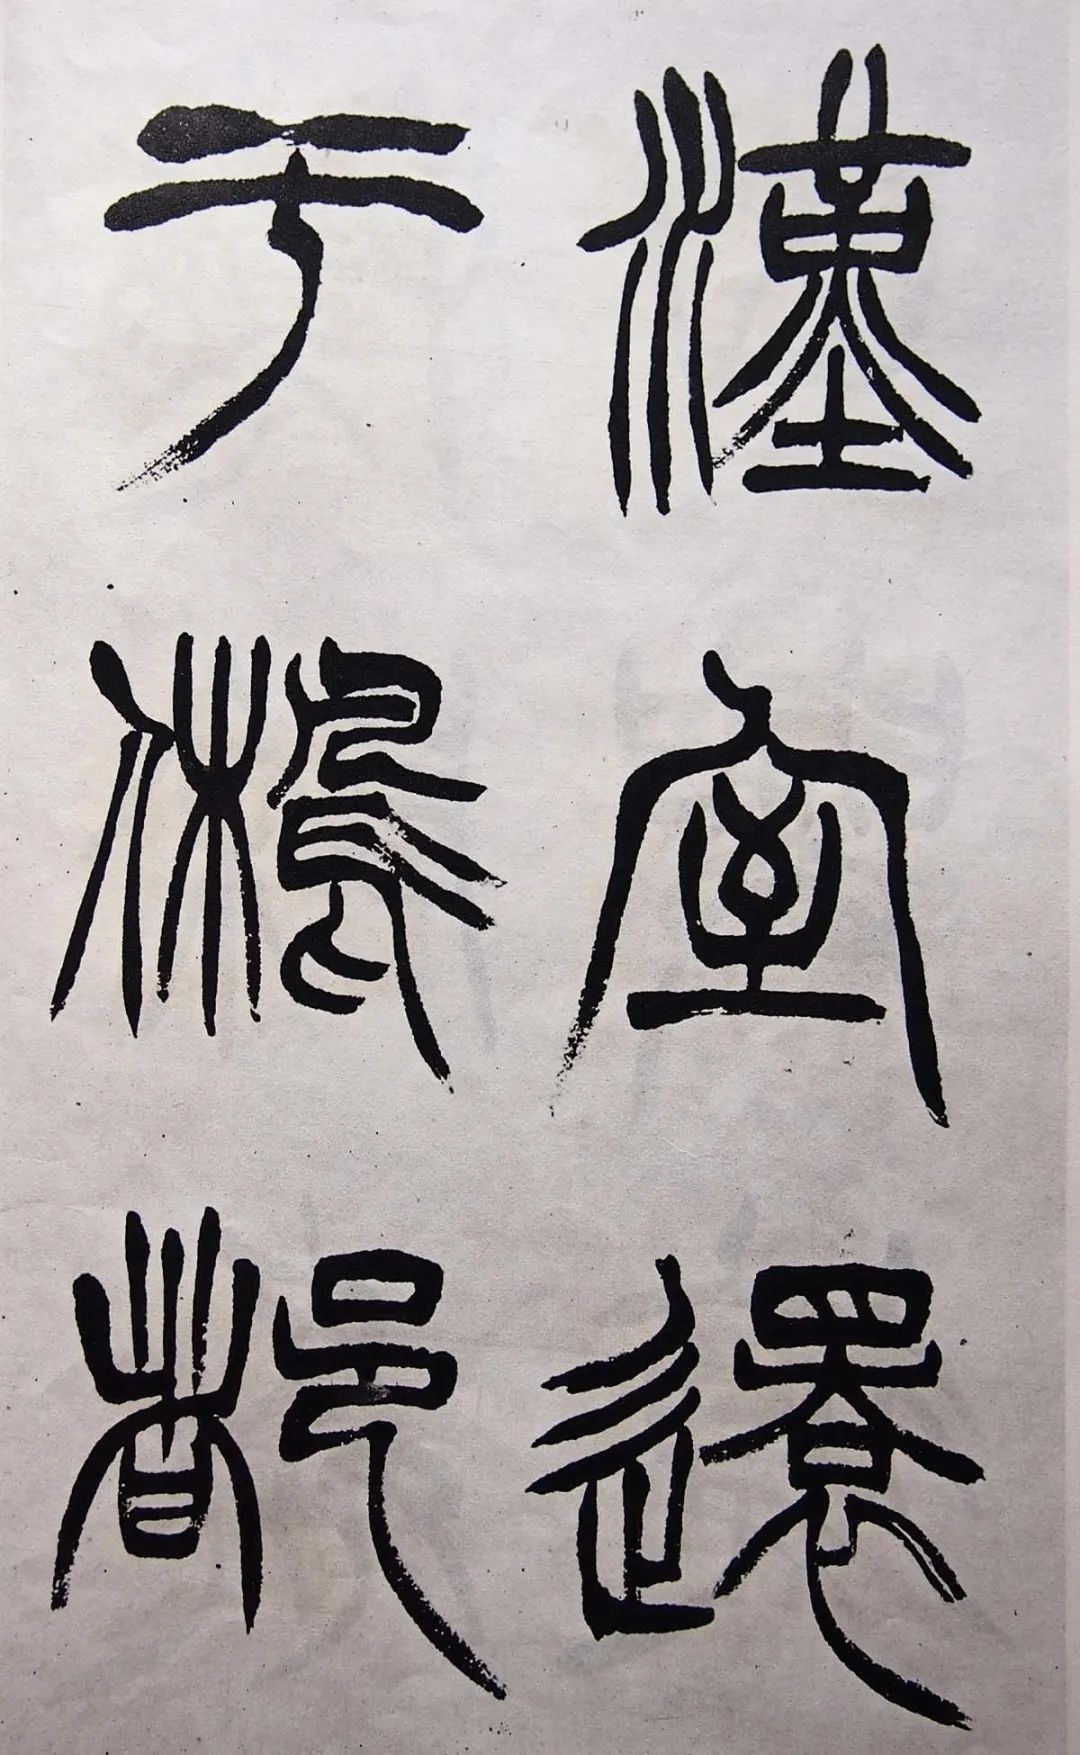 漢室還
于舊都